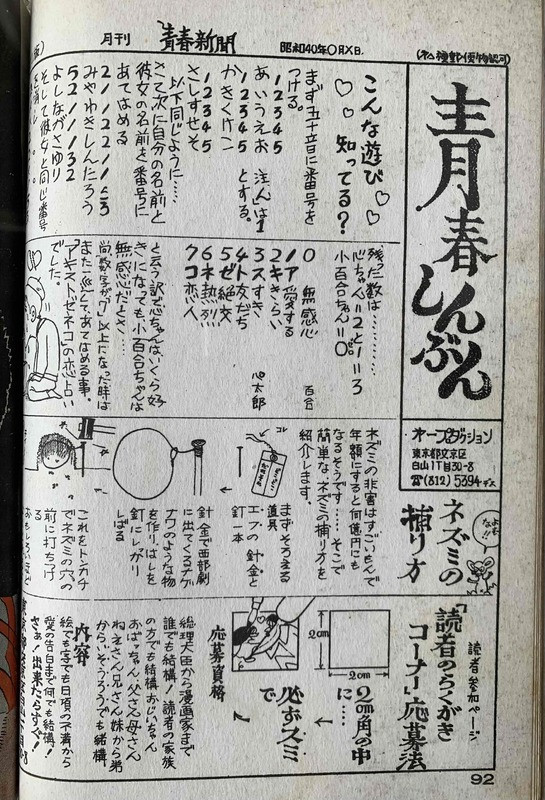 月刊
青春新聞
昭和40年0月X日
青春しんぶん
オープロダクション
東京都文京区
白山1丁目30-8
☎(812)5394デス
こんな遊び
知ってる?
まず五十音に番号を
つける。
12345
あいうえお 注んは1
12345 とする。
かきくけこ
12345
さしすせそ
以下同じように……
さて次に自分の名前と
彼女の名前を番号に
あてはめる
みやわきしんたろう
よしながさゆり
5211132
そして彼女と同じ番号
残った数は…………
心ちゃん=2と1=3
小百合ちゃん=0。
0 無感心
1ア愛する
2キきらい
3スすき
4ト友だち
5ゼ絶交
6ネ熱烈
7コ恋人
百合
心太郎
と云う訳で心ちゃんはいくら好
きになても小百合ちゃんは
無感心だとさ…
尚数字が「7」以上になった時は
また一巡してあてはめる事。
「アキストゼネコ」の恋占い
でした。
よもな!!
ネズミの
捕り方
ネズミの非害はすごいもんで
年額にすると何億円にも
なるそうです……そこで
簡単な、ネズミの捕り方を
紹介します。
まずそろえる
道具
エフの針金と
釘一本
コレ
針金で西部劇
に出てくるナゲ
ナワのような物
を作り、はしを
釘にしがり
しばる
これをトンカチ
でネズミの穴の
前に打ち付け
る
読者参加ページ
「読者のらくがき
コーナー」応募法
2cm
2cm
2cm角の中
に……
必ずスミ
で
応募資格
総理大臣から漫画家まで
誰でも結構!読者の家族
の方でも結構おじいちゃん
おばーちゃん、父さん母さん
ねえさん兄さん妹から弟
からいそうろうでも結構。
内容
絵でも字でも日頃の不満から
愛の告白まで何でも結構!
さあ!出来たらすぐ!
92